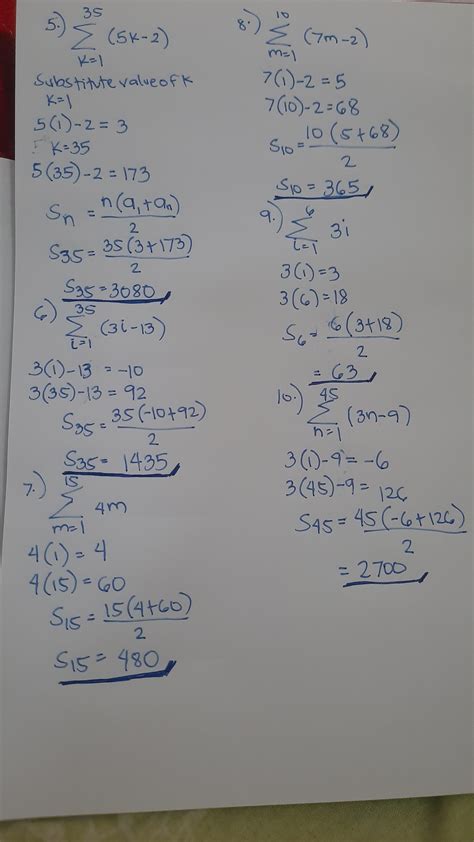 5.) 35
∑ (5k-2)
k=1
Substitute value of k
k=1
5(1)-2=3
k=35
5(35)-2=173
Sn = n(a₁+an)
2
S35= 35(3+173)
2
S35=3080
6) 35
∑ (3i-13)
i=1
3(1)-13 = -10
3(35)-13 = 92
S35= 35(-10+92)
2
S35= 1435
7.) 15
∑ 4m
m=1
4(1) = 4
4(15) = 60
S15= 15(4+60)
2
S15= 480
8.) 10
∑ (7m-2)
m=1
7(1)-2=5
7(10)-2=68
S10= 10(5+68)
2
S10 = 365
9.) 6
∑ 3i
i=1
3(1)=3
3(6)=18
S6= 6(3+18)
2
= 63
10.) 45
∑ (3n-9)
n=1
3(1)-9=-6
3(45)-9= 126
S45= 45(-6+126)
2
= 2700